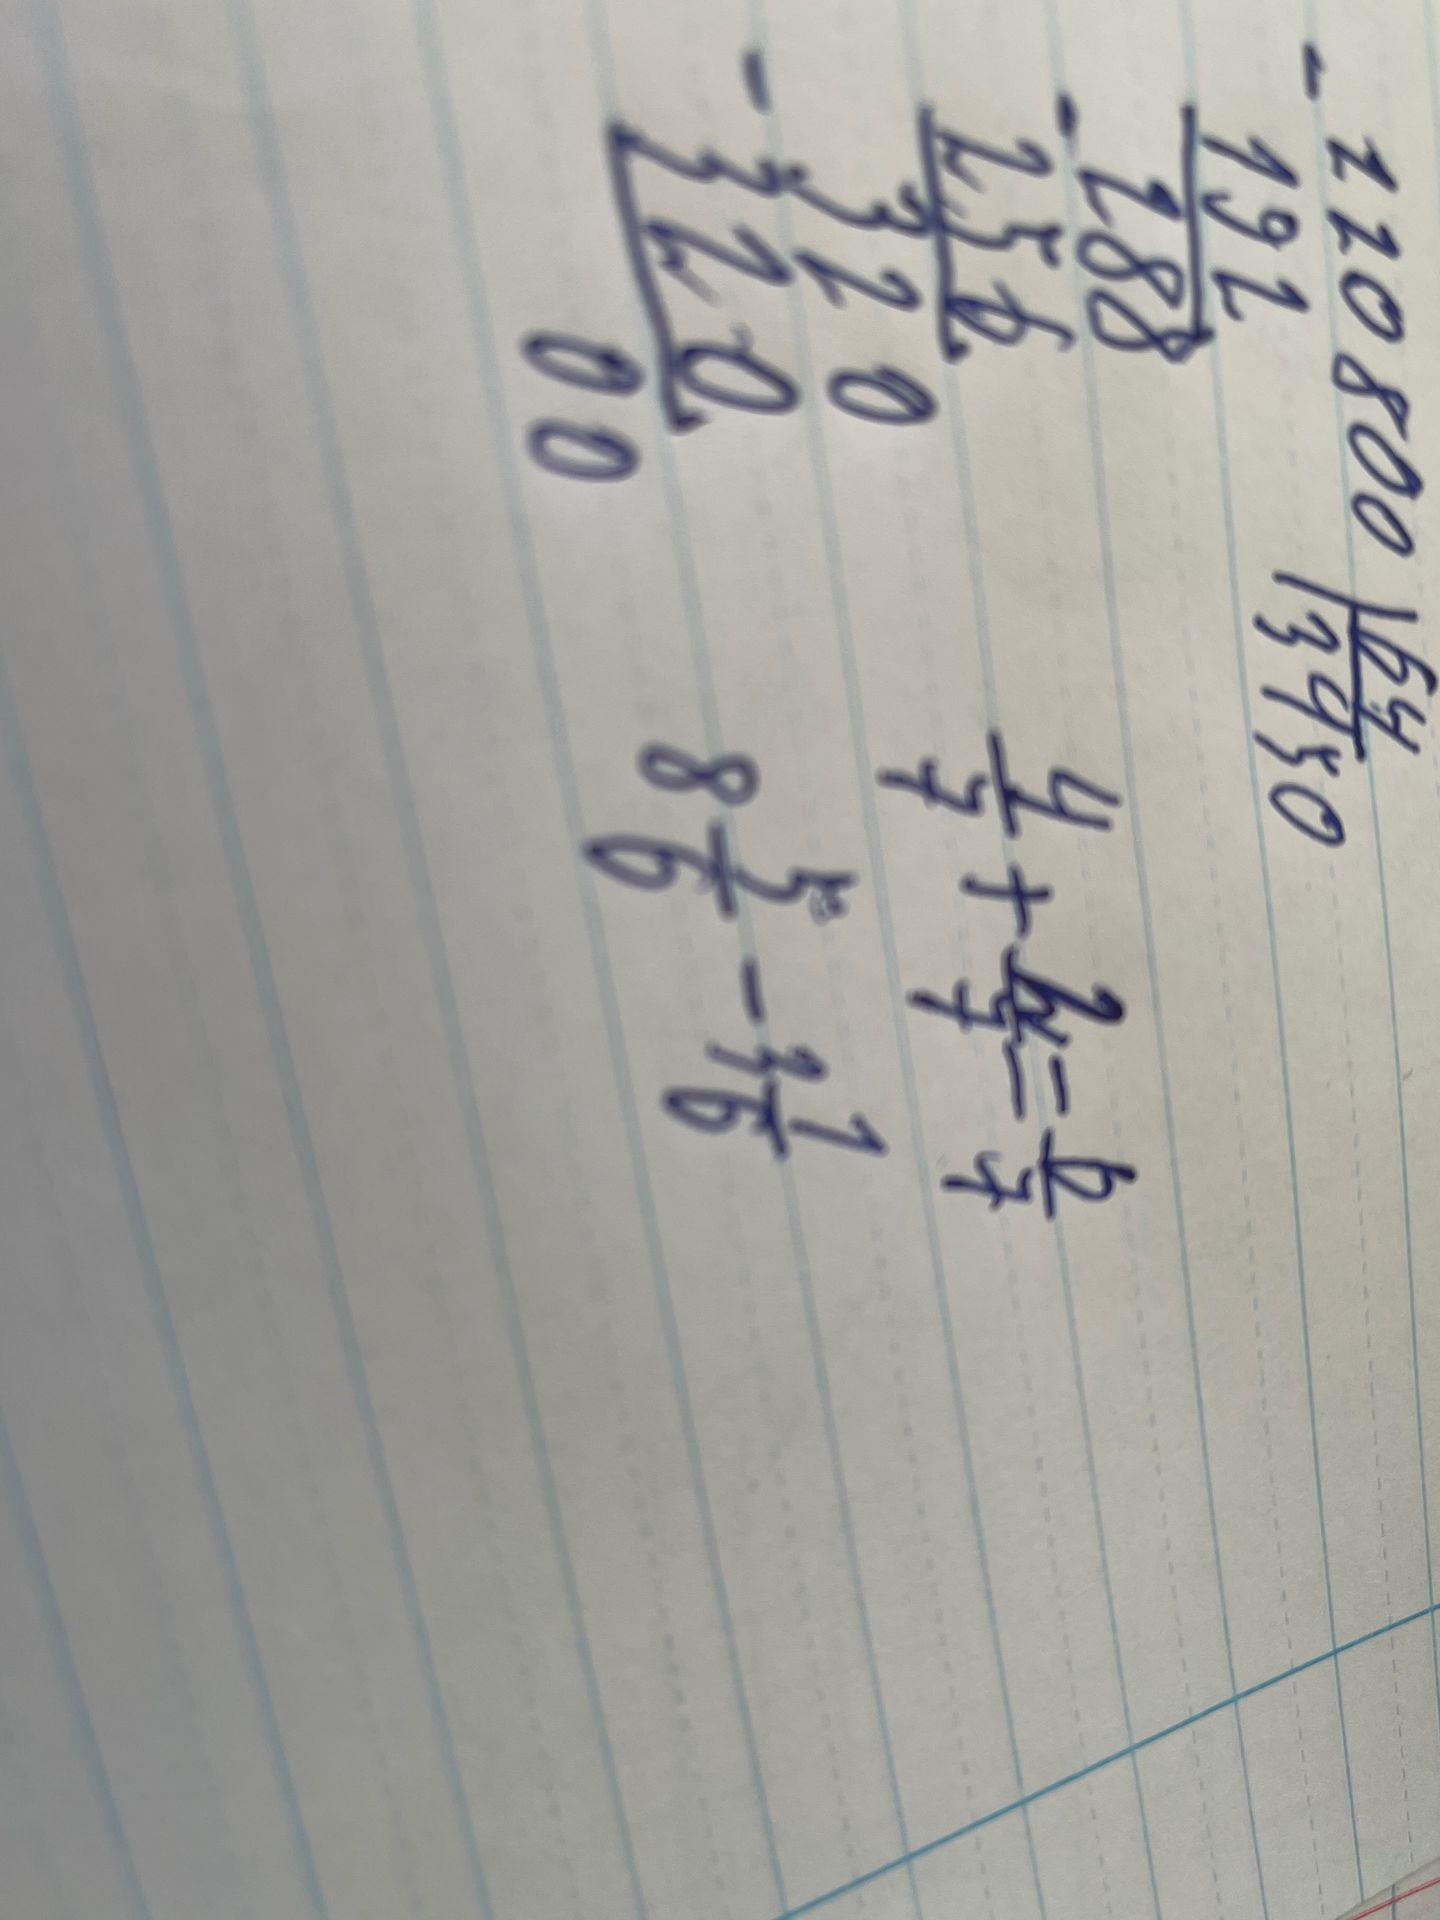 - 220800 | 64
192 | 3450
- 288
256
- 320
320
00
4/7 + 2/7 = 6/7
8 5/6 - 3 1/6